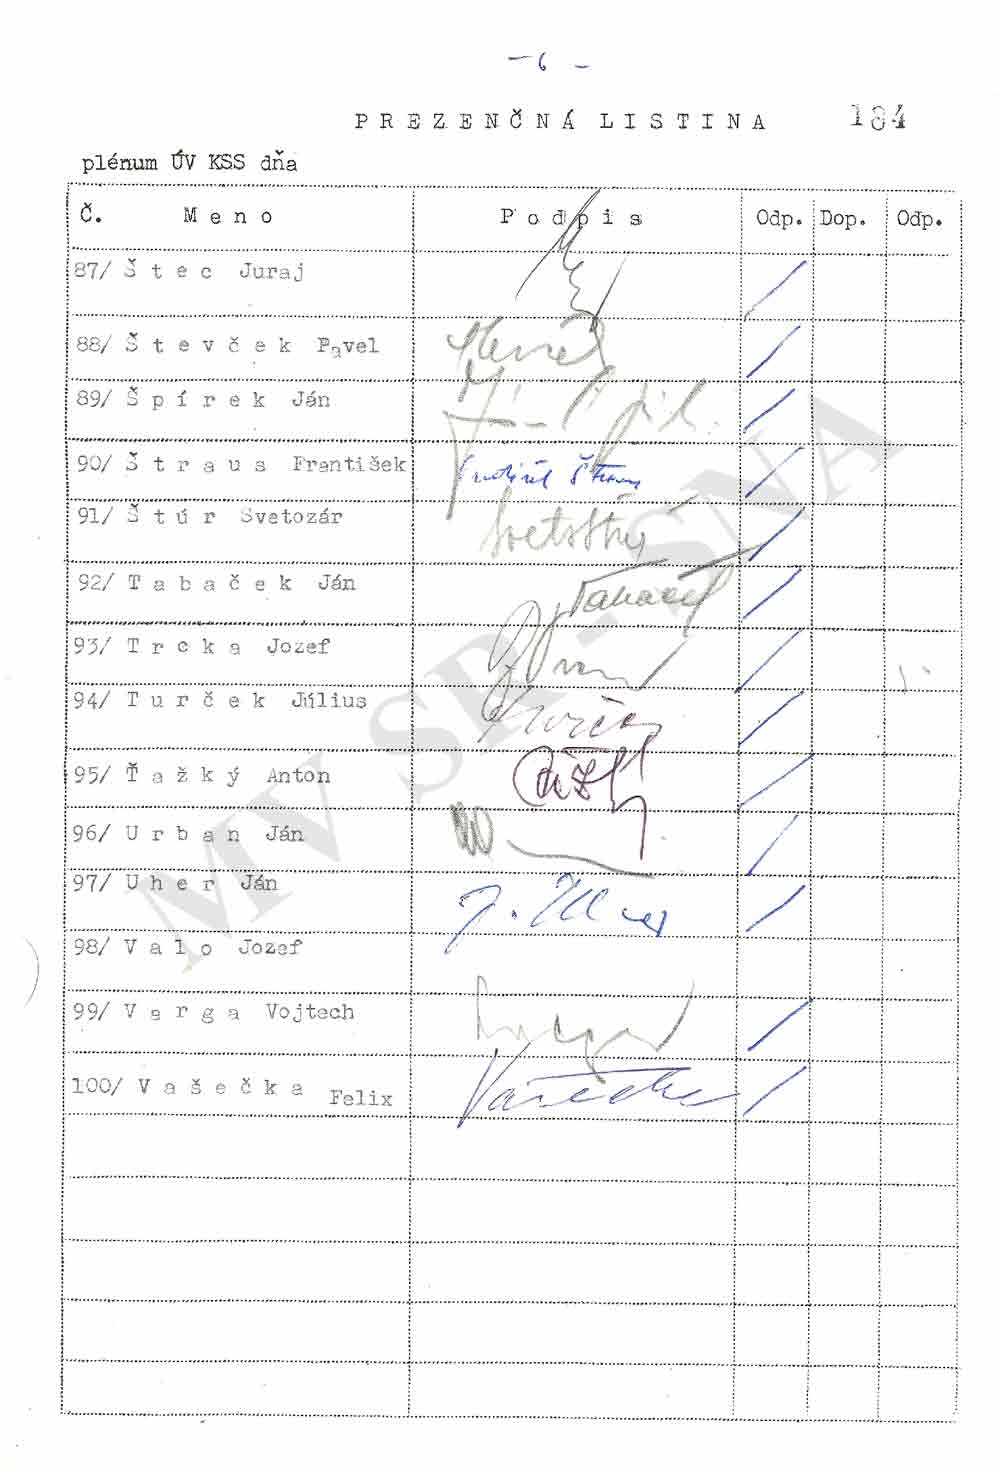 – 6 –
PREZENČNÁ LISTINA 184
plénum ÚV KSS dňa
Č. Meno Podpis Odp. Dop. Odp.
87/ Štec Juraj
88/ Števček Pavel
89/ Špírek Ján
90/ Štraus František
91/ Štúr Svetozár
92/ Tabaček Ján Tabaček
93/ Trcka Jozef
94/ Turček Július
95/ Ťažký Anton
96/ Urban Ján
97/ Uher Ján J. Uher
98/ Valo Jozef
99/ Varga Vojtech
100/ Vašečka Felix Vašečka
MV SR - SNA